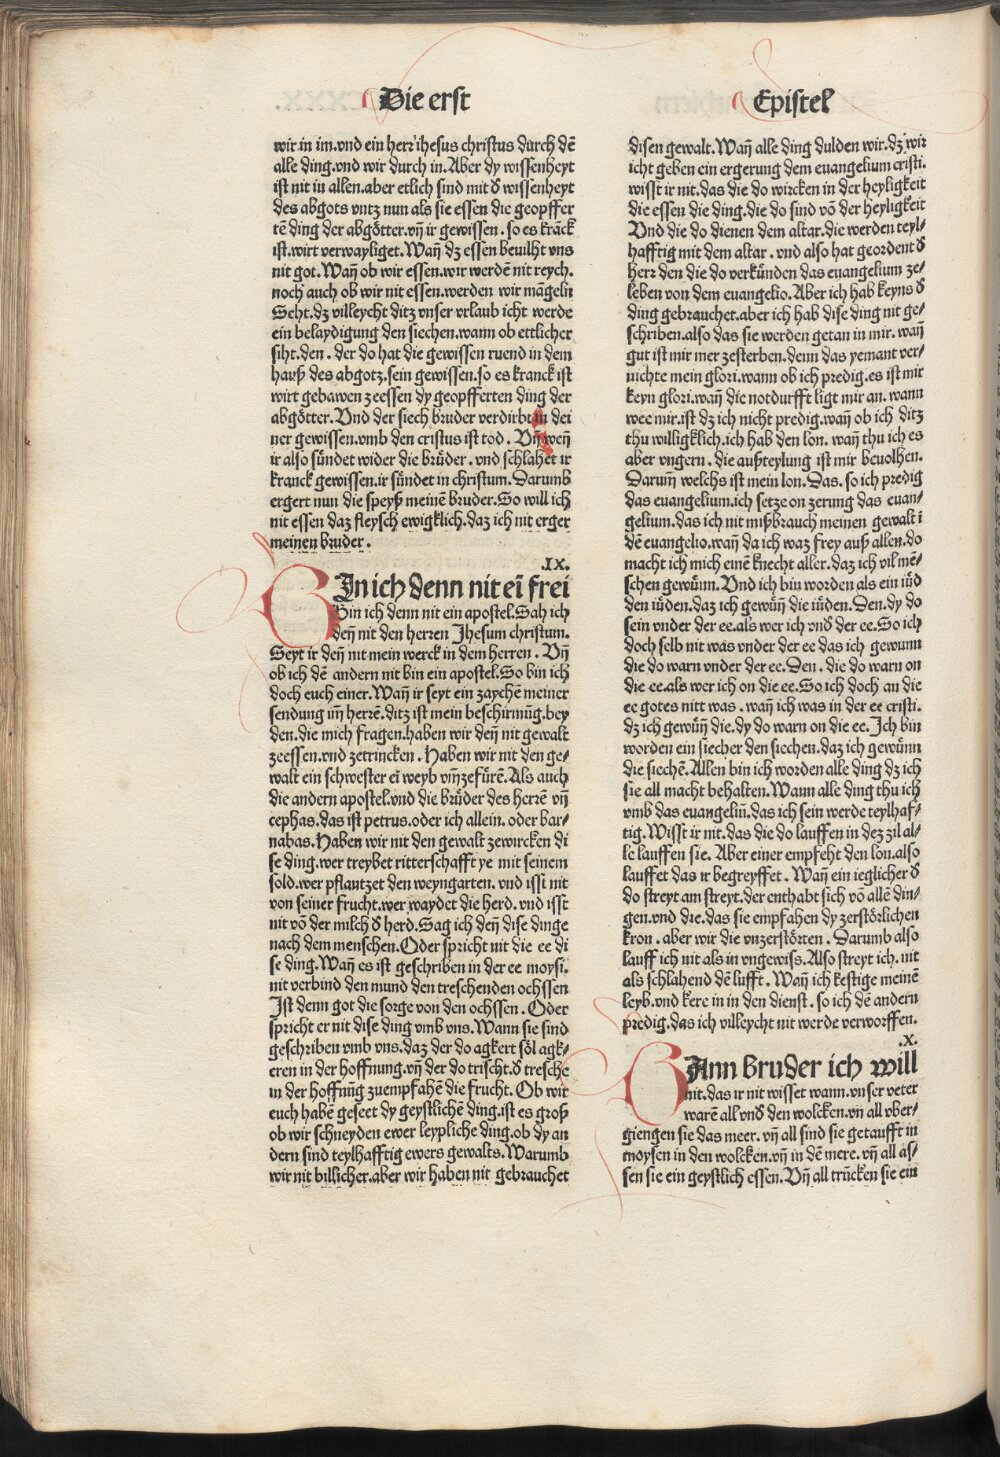 Die erst
Epistel
wir in im.vnd ein herr ihesus christus durch dē
alle ding.vnd wir durch in.Aber dy wissenheyt
ist nit in allen.aber etlich sind mit d̓ wissenheyt
des abgots vntz nun als sie essen die geopffer
tē ding der abgötter.vn̄ ir gewissen.so es kranck
ist.wirt vermayliget.Wan̄ dz essen beuilht vns
nit got.Wan̄ ob wir essen.wir werdē nit reych.
noch auch ob wir nit essen.werden wir mā geln
Seht.dz villeycht ditz vnser vrlaub icht werde
ein belaydigung den siechen.wann ob ettlicher
siht.den.der do hat die gewissen ruend in dem
hauß des abgotz.sein gewissen.so es kranck ist
wirt gebawen zeessen dy geopfferten ding der
abgötter.Vnd der siech bruder verdirbt in dei
ner gewissen.vmb den cristus ist tod.Vn̄ wen̄
ir also sündet wider die brüder.vnd schlahet ir
kranck gewissen.ir sündet in christum.Darumb
ergert nun die speyß meinē bruder.So will ich
nit essen daz fleysch ewigklich.daz ich nit erger
meinen bruder.
.IX.
BIn ich denn nit eī frei
Bin ich denn nit ein apostel.Sah ich
den̄ nit den herren Jhesum christum.
Seyt ir den̄ nit mein werck in dem herren.Vn̄
ob ich dē andern nit bin ein apostel.So bin ich
doch euch einer.Wan̄ ir seyt ein zaychē meiner
sendung im̄ herrē.ditz ist mein beschirmūg.bey
den.die mich fragen.haben wir den̄ nit gewalt
zeessen.vnd zetrincken.Haben wir nit den ge-
walt ein schwester eī weyb vm̄zefürē.Als auch
die andern apostel.vnd die brüder des herrē vn̄
cephas.das ist petrus.oder ich allein.oder bar-
nabas.Haben wir nit den gewalt zewircken di
se ding.wer treybet ritterschafft ye mit seinem
sold.wer pflantzet den weyngarten.vnd isst nit
von seiner frucht.wer waydet die herd.vnd isst
nit vō der milch d̓ herd.Sag ich den̄ dise dinge
nach dem menschen.Oder spricht nit die ee di
se ding.Wan̄ es ist geschriben in der ee moysi.
nit verbind den mund den treschenden ochssen
Ist denn got die sorge von den ochssen.Oder
spricht er nit dise ding vmb vns.Wann sie sind
geschriben vmb vns.daz der do agkert söl agk-
eren in der hoffnung.vn̄ der do trischt.d̓ tresche
in der hoffnūg zuempfahē die frucht.Ob wir
euch habē geseet dy geystlichē ding.ist es groß
ob wir schneyden ewer leypliche ding.ob dy an
dern sind teylhafftig ewers gewalts.Warumb
wir nit billicher.aber wir haben nit gebrauchet
disen gewalt.Wan̄ alle ding dulden wir.dz wir
icht geben ein ergerung dem euangelium cristi.
wisst ir nit.das die do wircken in der heyligkeit
die essen die ding.die do sind vō der heyligkeit
Vnd die do dienen dem altar.die werden teyl-
hafftig mit dem altar.vnd also hat geordent d̓
herr den die do verkünden das euangelium ze-
leben von dem euangelio.Aber ich hab keyns d̓
ding gebrauchet.aber ich hab dise ding nit ge-
schriben.also das sie werden getan in mir.wan̄
gut ist mir mer zesterben.denn das yemant ver-
nichte mein glori.wann ob ich predig.es ist mir
keyn glori.wan̄ die notdurfft ligt mir an.wann
wee mir.ist dz ich nicht predig.wan̄ ob ich ditz
thu willigklich.ich hab den lon.wan̄ thu ich es
aber vngern.die außteylung ist mir beuolhen.
Darum̄ welchs ist mein lon.Das.so ich predig
das euangelium.ich setze on zerung das euan-
gelium.das ich nit mißbrauch meinen gewalt ī
dē euangelio.wan̄ da ich waz frey auß allen.do
macht ich mich einē knecht aller.daz ich vil mē-
schen gewünn.Vnd ich bin worden als ein iüd
den iüden.daz ich gewün̄ die iüden.Den.dy do
sein vnder der ee.als wer ich vnd̓ der ee.So ich
doch selb nit was vnder der ee das ich gewunn
die do warn vnder der ee.Den.die do warn on
die ee.als wer ich on die ee.So ich doch an die
ee gotes nitt was.wan̄ ich was in der ee cristi.
dz ich gewün̄ die.dy do warn on die ee.Ich bin
worden ein siecher den siechen.daz ich gewünn
die siechē.Allen bin ich worden alle ding dz ich
sie all macht behalten.Wann alle ding thu ich
vmb das euangeliū.das ich sein werde teylhaf-
tig.Wisst ir nit.das die do lauffen in dez zil al-
le lauffen sie.Aber einer empfeht den lon.also
lauffet das ir begreyffet.Wan̄ ein ieglicher d̓
do streyt am streyt.der enthabt sich vō allē din-
gen.vnd die.das sie empfahen dy zerstörlichen
kron.aber wir die vnzerstörten.Darumb also
lauff ich nit als in vngewiss.Also streyt ich.nit
als schlahend dē lufft.Wan̄ ich kestige meinē
leyb.vnd kere in in den dienst.so ich dē andern
predig.das ich villeycht nit werde verworffen.
.X.
WAnn bruder ich will
nit.das ir nit wisset wann.vnser veter
warē all vnd̓ den wolcken.vn̄ all vber-
giengen sie das meer.vn̄ all sind sie getaufft in
moysen in den wolcken.vn̄ in dē mere.vn̄ all as-
sen sie ein geystlich essen.Vn̄ all trūcken sie ein